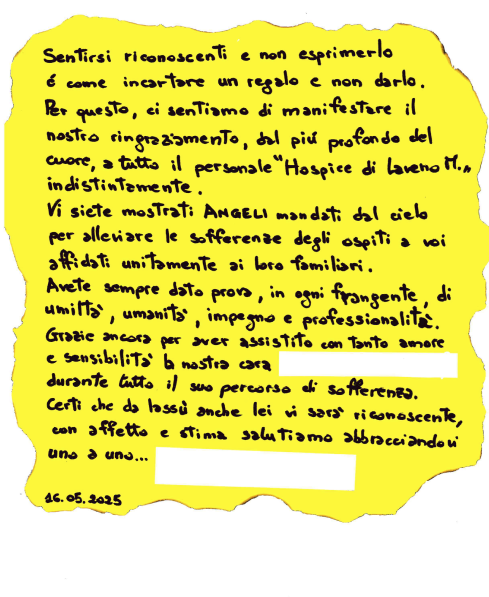 Sentirsi riconoscenti e non esprimerlo
é come incartare un regalo e non darlo.
Per questo, ci sentiamo di manifestare il
nostro ringraziamento, dal più profondo del
cuore, a tutto il personale "Hospice di Laveno M."
indistintamente.
Vi siete mostrati ANGELI mandati dal cielo
per alleviare le sofferenze degli ospiti a voi
affidati unitamente ai loro familiari.
Avete sempre dato prova, in ogni frangente, di
umiltà, umanità, impegno e professionalità.
Grazie ancora per aver assistito con tanto amore
e sensibilità la nostra cara
durante tutto il suo percorso di sofferenza.
Certi che da lassù anche lei vi sarà riconoscente,
con affetto e stima salutiamo abbracciandovi
uno a uno...
16.05.2025